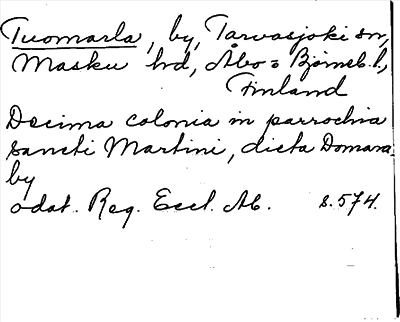 Tuomarla, by, Tarvasjoki sn,
Masku hd, Åbo = Björneb. l.,
Finland
Decima colonia in parrochia
sancti Martini, dicta Domara-
by
odat. Reg. Eccl. Ab. s. 574.